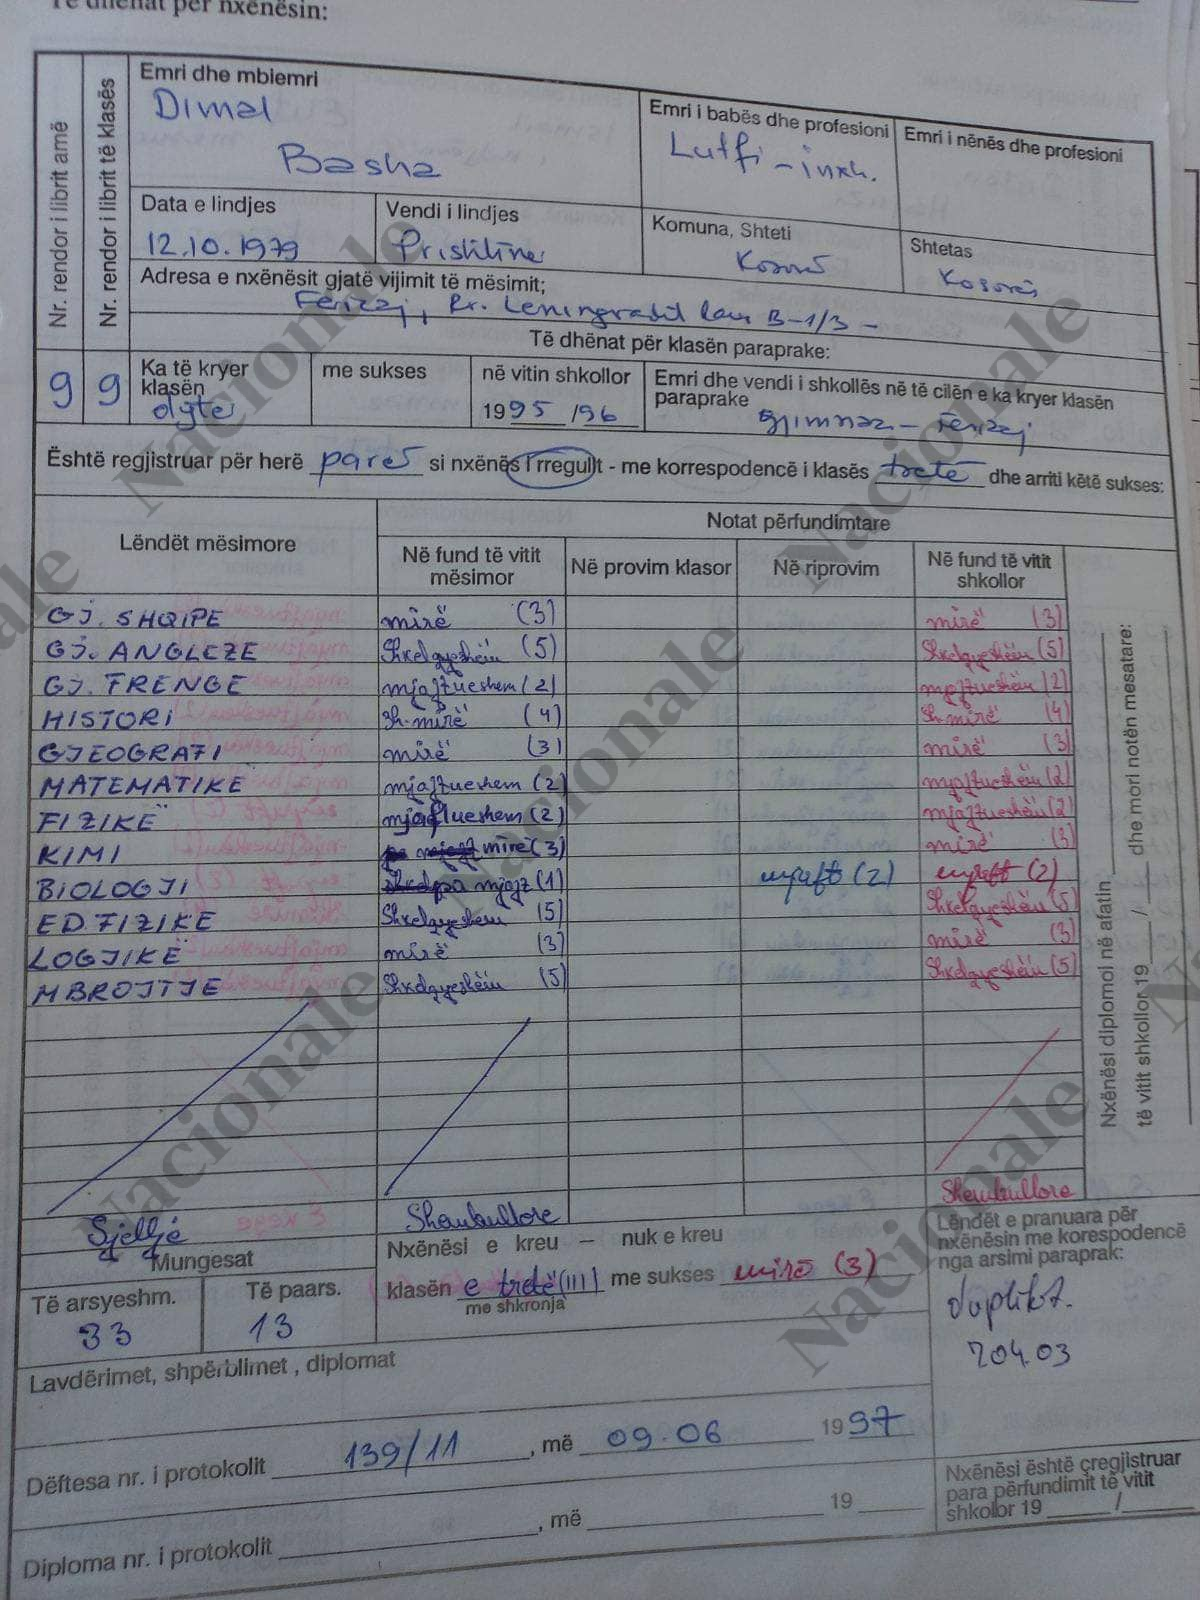 Të dhënat për nxënësin:
Nr. rendor i librit amë
Nr. rendor i librit të klasës
Emri dhe mbiemri
Dimal
Basha
Emri i babës dhe profesioni
Lutfi - inxh.
Emri i nënës dhe profesioni
Data e lindjes
12.10.1979
Vendi i lindjes
Prishtine
Komuna, Shteti
Kosovë
Shtetas
Kosovës
Adresa e nxënësit gjatë vijimit të mësimit;
Ferizaj, Rr. Leningradit B-1/3 -
Të dhënat për klasën paraprake:
9 9
Ka të kryer klasën
dytë
me sukses
në vitin shkollor
1995/96
Emri dhe vendi i shkollës në të cilën e ka kryer klasën paraprake
Gjimnaz - Ferizaj
Është regjistruar për herë parë si nxënës i rregullt - me korrespodencë i klasës tretë dhe arriti këtë sukses:
Lëndët mësimore
Notat përfundimtare
Në fund të vitit mësimor
Në provim klasor
Në riprovim
Në fund të vitit shkollor
GJ. SHQIPE mirë (3) mirë (3)
GJ. ANGLEZE Shkelqyeshëm (5) Shkelqyeshëm (5)
GJ. FRENGE mjaftueshem (2) mjaftueshëm (2)
HISTORI Sh. mirë (4) Sh. mirë (4)
GJEOGRAFI mirë (3) mirë (3)
MATEMATIKE mjaftueshem (2) mjaftueshëm (2)
FIZIKË mjaftueshem (2) mjaftueshëm (2
KIMI mirë (3) mirë (3)
BIOLOGJI pa mjaft (1) mjaft (2) mjaft (2)
ED. FIZIKE Shkelqyeshëm (5) Shkelqyeshëm (5)
LOGJIKË mirë (3) mirë (3)
MBROJTJE Shkelqyeshëm (5) Shkelqyeshëm (5)
Nxënësi diplomoi në afatin
të vitit shkollor 19 / dhe mori notën mesatare:
Sjellje Shembullore Shembullore
Mungesat
Të arsyeshm.
33
Të paars.
13
Nxënësi e kreu – nuk e kreu
klasën e tretë (III) me sukses mirë (3)
me shkronja
Lëndët e pranuara për nxënësin me korespodencë nga arsimi paraprak:
duplikt.
204.03
Lavdërimet, shpërblimet , diplomat
Dëftesa nr. i protokolit 139/11 , më 09.06 1997
Diploma nr. i protokolit , më 19
Nxënësi është çregjistruar para përfundimit të vitit shkollor 19 /
Nacionale
Nacionale
Nacionale
Nacionale
Nacionale